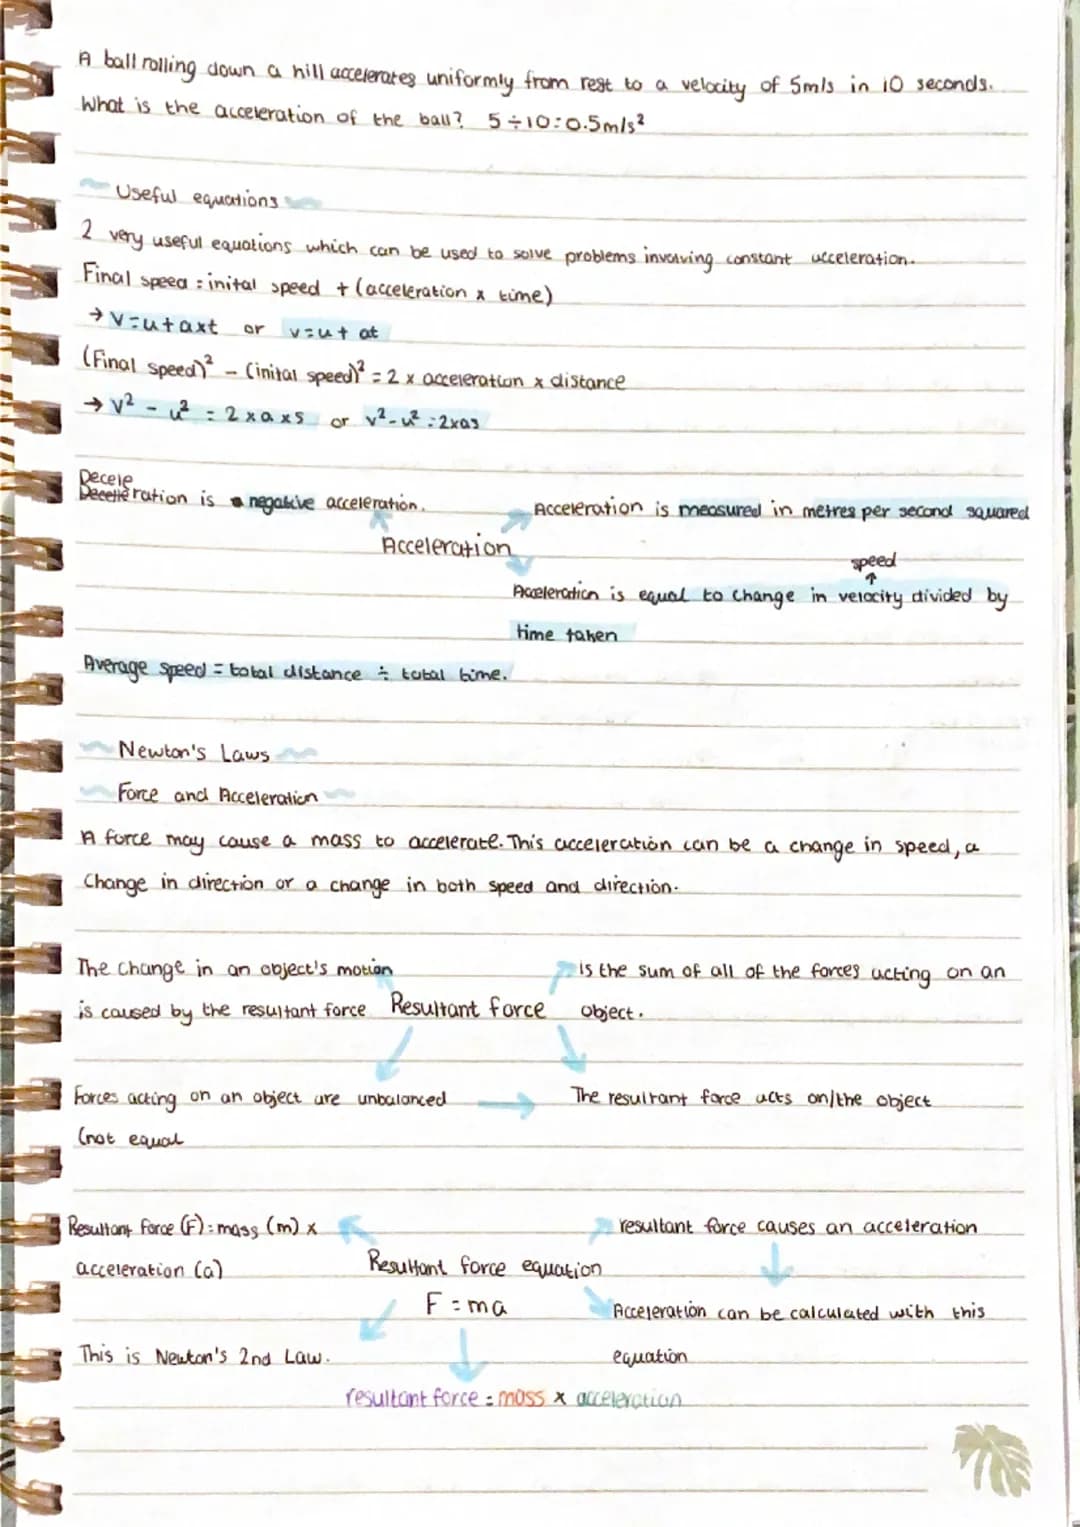 A ball rolling down a hill accelerates uniformly from rest to a velocity of 5m/s in 10 seconds.
What is the acceleration of the ball? 5÷10=0.5m/s²
Useful equations
2 very useful equations which can be used to solve problems involving constant acceleration.
Final speed = inital speed + (acceleration x time)
→ v=u+axt or v=u+ at
(Final speed)² - (inital speed)² = 2 x acceleration x distance
→ v² - u² = 2 x a x s or v²-u² =2xas
Decele
ration is negative acceleration.
Acceleration is measured in metres per second squared
Acceleration
speed
↑
Acceleration is equal to change in velocity divided by
time taken
Average speed = total distance ÷ total time.
Newton's Laws
Force and Acceleration
A force may cause a mass to accelerate. This acceleration can be a change in speed, a
Change in direction or a change in both speed and direction.
The change in an object's motion
is caused by the resultant force
Resultant force
is the sum of all of the forces acting on an
object.
Forces acting on an object are unbalanced
(not equal
→
The resultant force acts on/the object
Resultant force (F)=mass (m) x
acceleration (a)
Resultant force equation
F = ma
resultant force causes an acceleration
Acceleration can be calculated with this
equation
This is Newton's 2nd Law.
resultant force = mass x acceleration